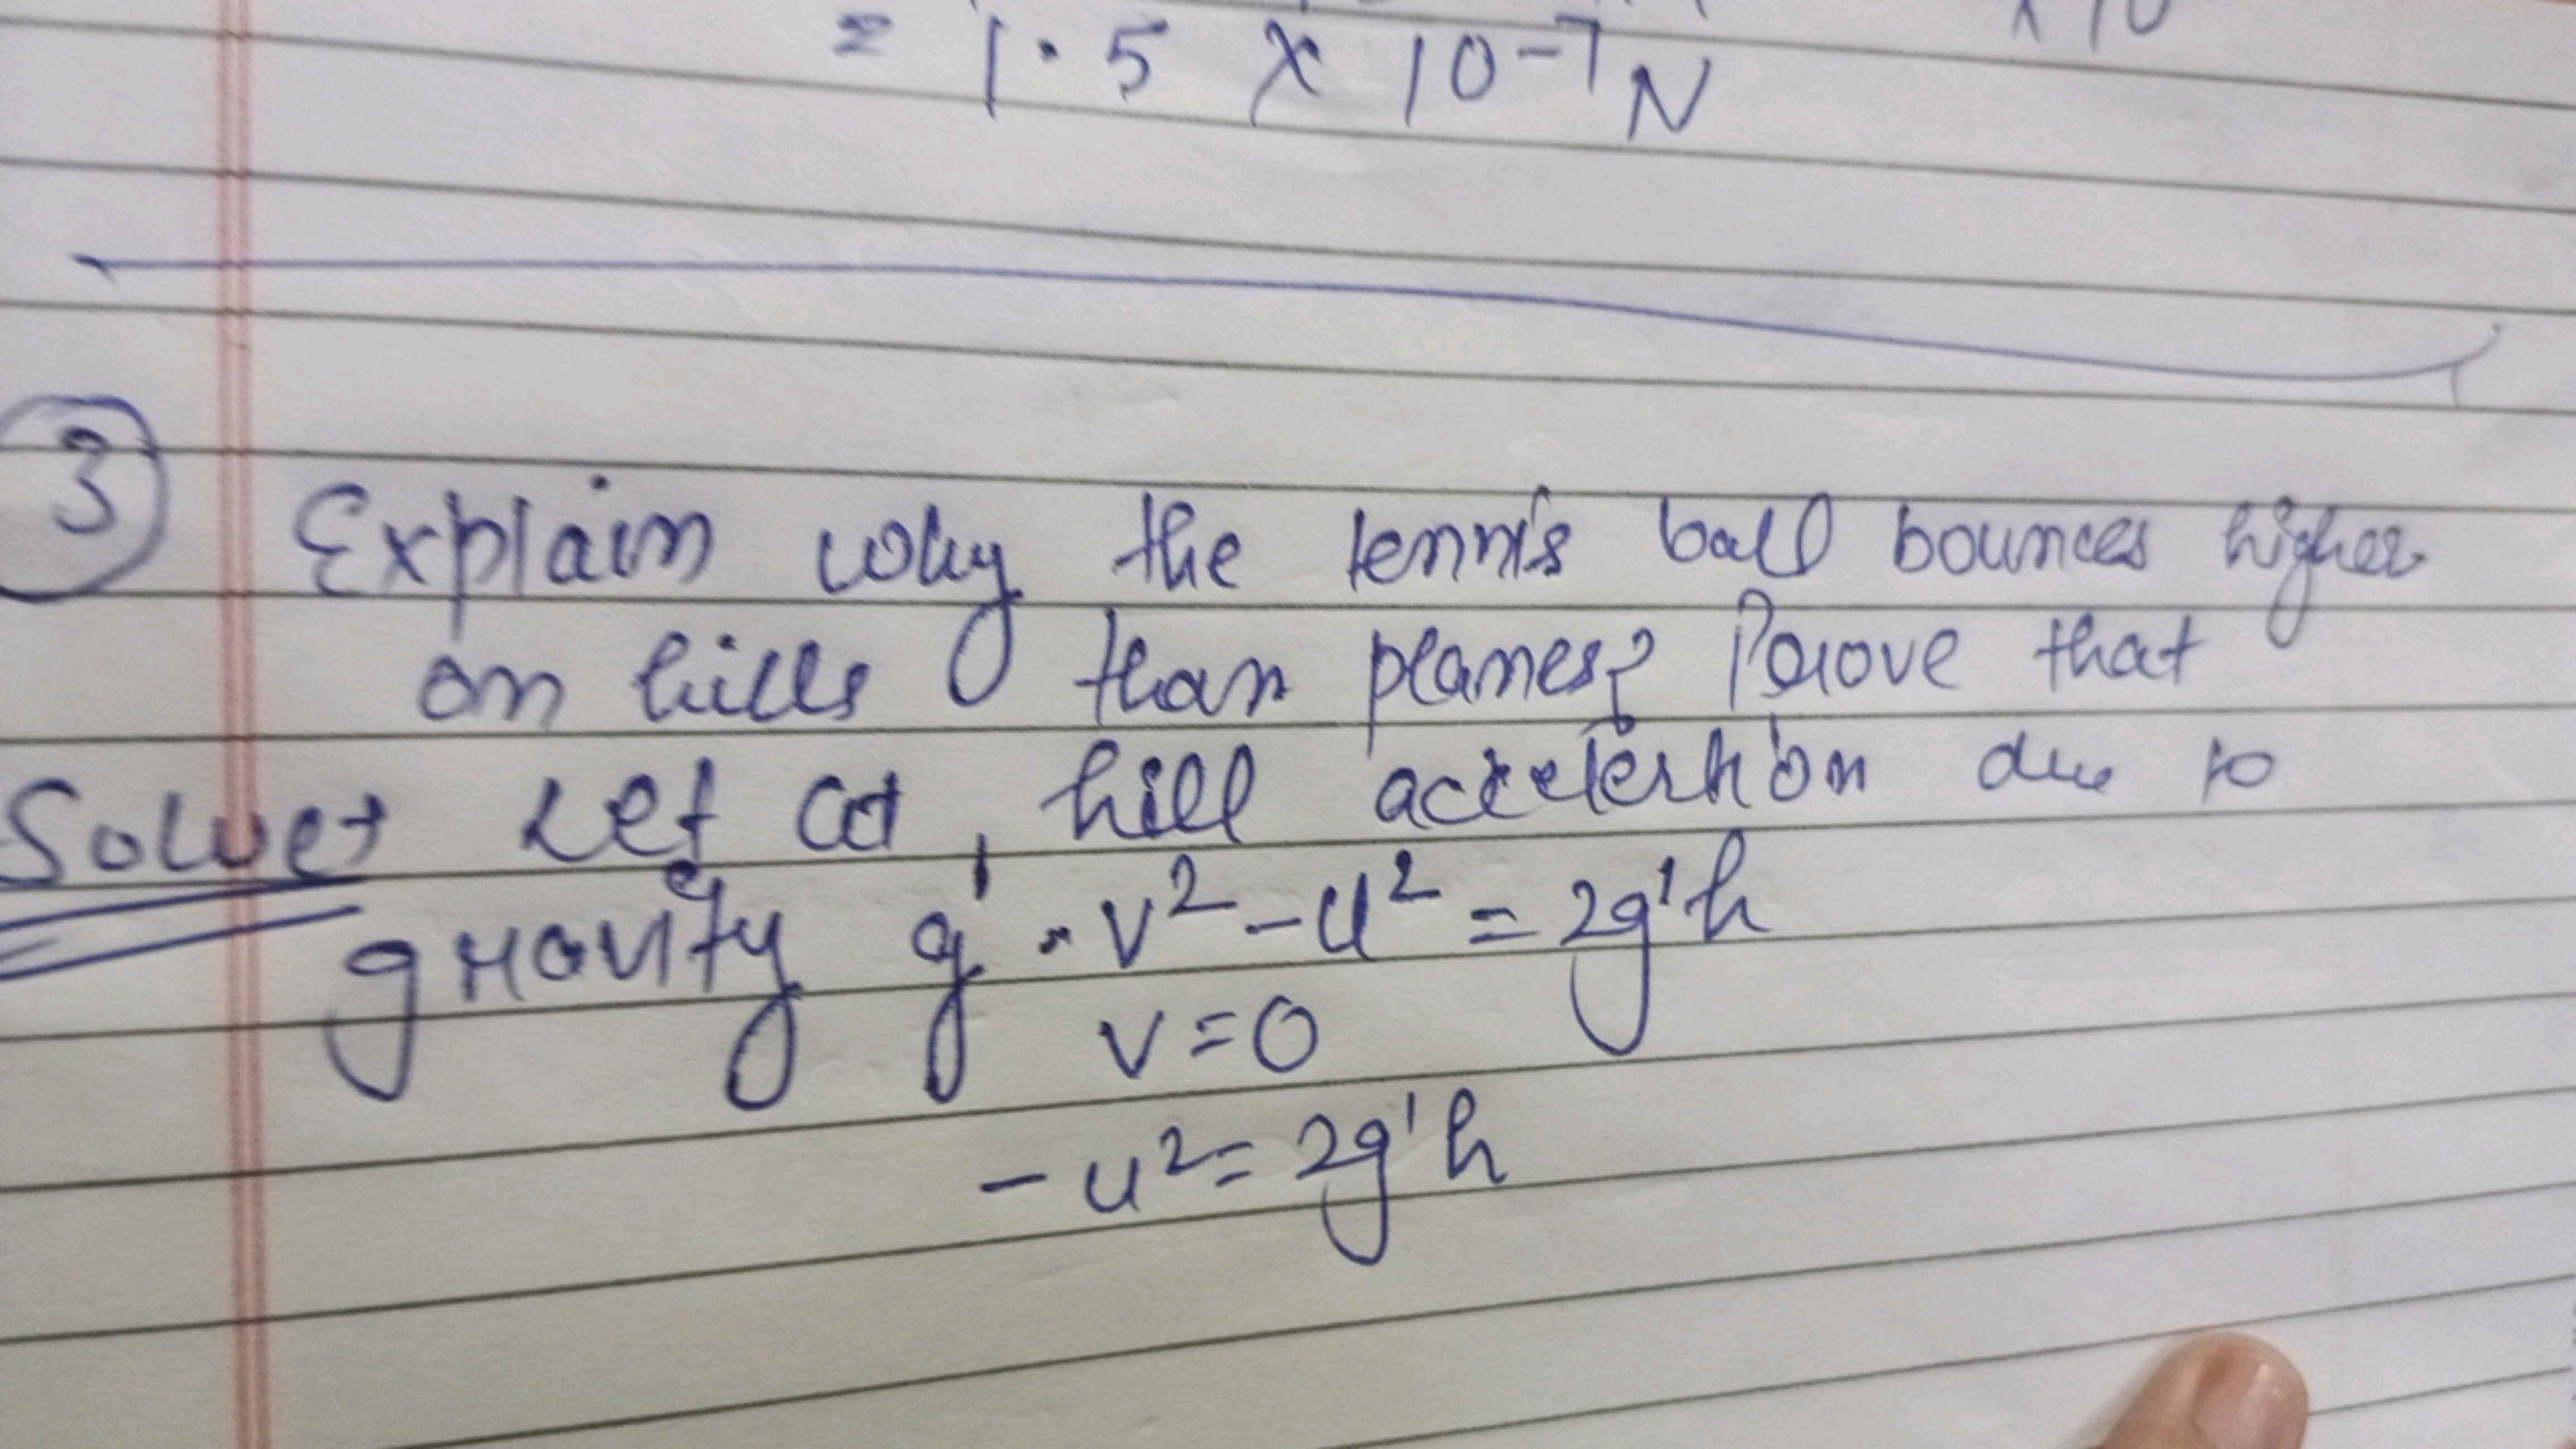 = 1.5 x 10⁻⁷ N
③ Explain why the tennis ball bounces higher
on hills than planes? Prove that
Solve→ Let at, hill accelertion due to
gravity g' . v² - u² = 2g'h
v = 0
- u² = 2g'h